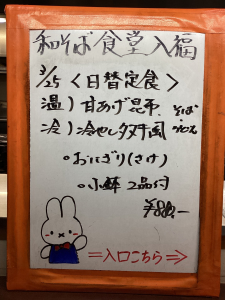 和そば食堂入福
3/25 〈日替定食〉
温）甘あげ昆布 そば
冷）冷やしタヌキ風
・おにぎり（さけ）
・小鉢 2品付
¥880.-
⇒入口こちら⇒